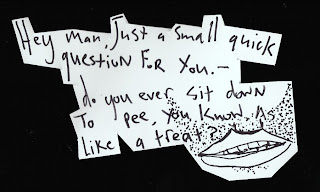 Hey man, Just a small quick
question For you.—
do you ever sit down
To pee, you know. As
Like a treat?